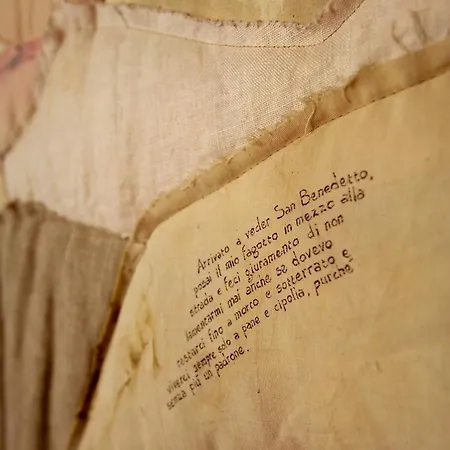 Arrivato a veder San Benedetto,
posai il mio fagotto in mezzo alla
strada e feci giuramento di non
lamentarmi mai anche se dovevo
restarci fino a morto e sotterrato e
viverci sempre solo a pane e cipolla, purché
senza più un padrone.